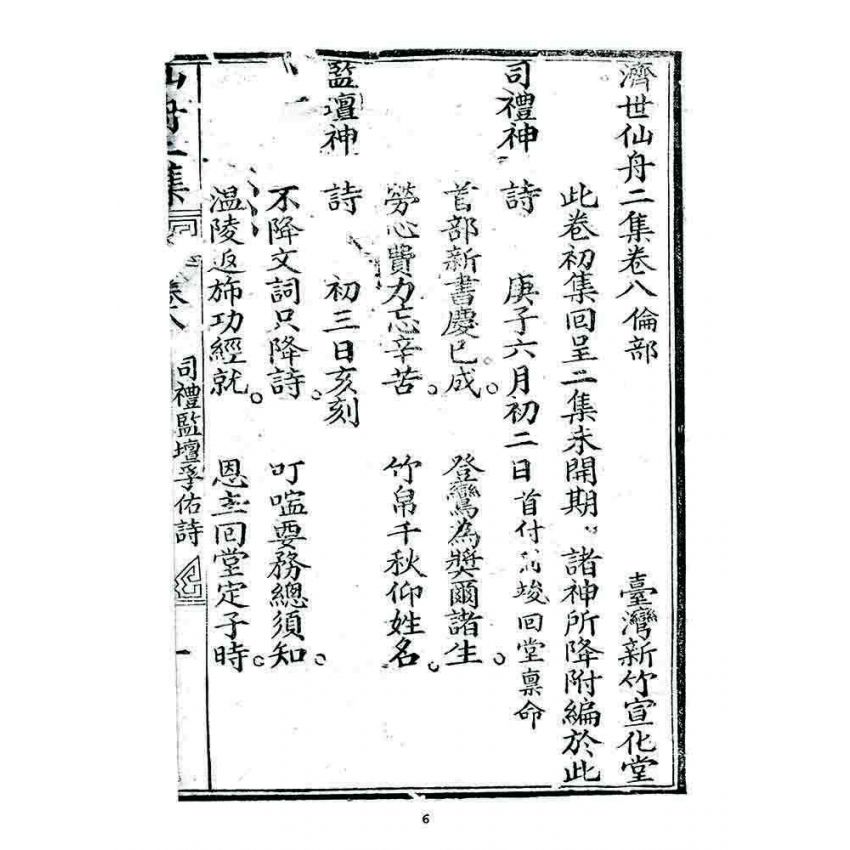 濟世仙舟二集卷八倫部 臺灣新竹宣化堂
此卷初集回呈二集未開期。諸神所降附編於此
司禮神 詩 庚子六月初二日首付竣回堂稟命
首部新書慶已成。 登鸞為獎爾諸生。
勞心費力忘辛苦。 竹帛千秋仰姓名。
監壇神 詩 初三日亥刻
不降文詞只降詩。 叮嚀要務總須知。
溫陵返旆功經就。 恩主回堂定子時。
仙舟二集 卷八 司禮監壇孚佑詩 一
6